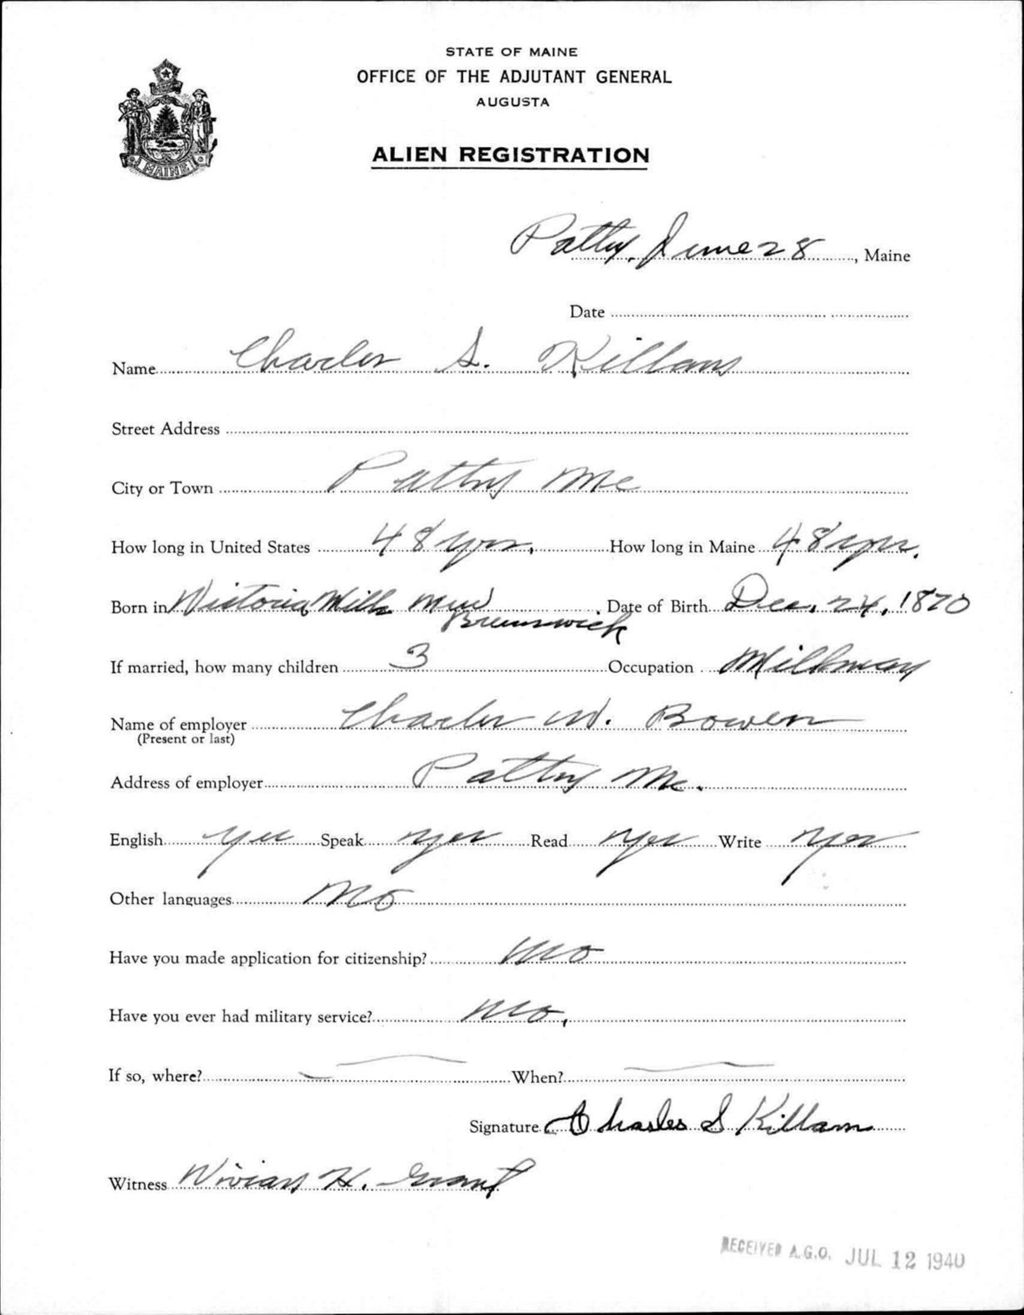 STATE OF MAINE
OFFICE OF THE ADJUTANT GENERAL
AUGUSTA
MAINE
ALIEN REGISTRATION
Patty, June 28, Maine
Date
Name Charles S. Killam
Street Address
City or Town Patty Me
How long in United States 48 yrs. How long in Maine 48 yrs.
Born in Victoria Mills New Brunswick Date of Birth Dec. 24, 1870
If married, how many children 3 Occupation Millman
Name of employer Charles W. Bowen
(Present or last)
Address of employer Patty Me.
English yes Speak yes Read yes Write yes
Other languages No
Have you made application for citizenship? No
Have you ever had military service? No.
If so, where? — When? —
Signature Charles S Killam
Witness Vivian H. Grant
RECEIVED A.G.O. JUL 12 1940